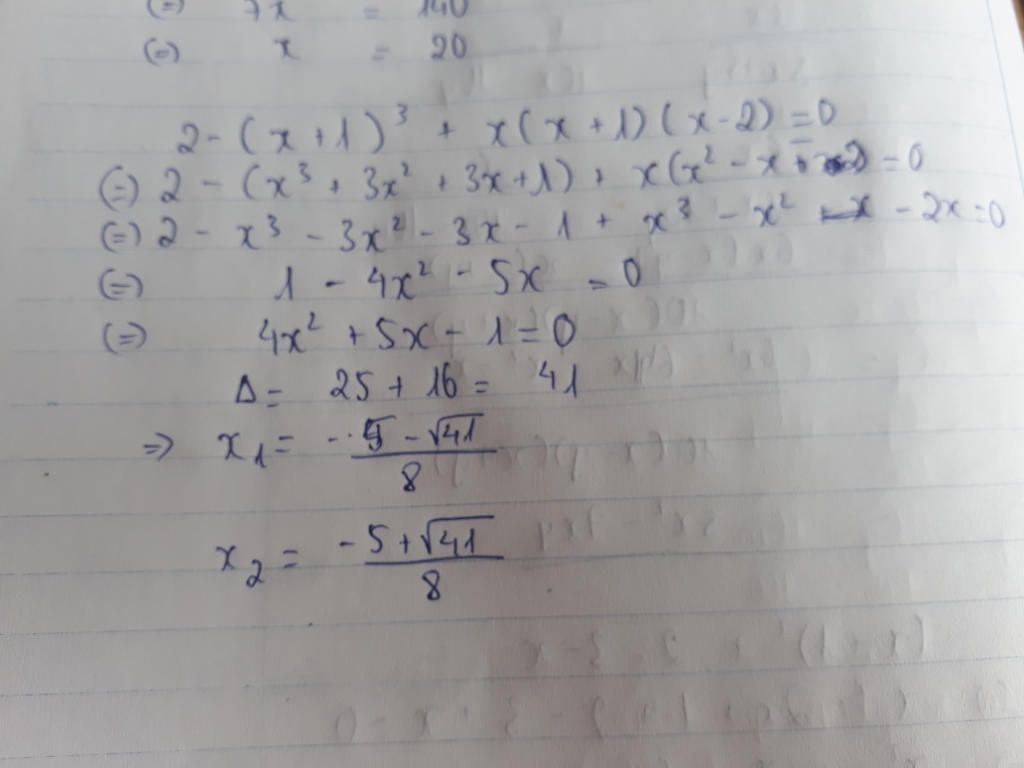 (=) 7x = 140
(=) x = 20
2 - (x + 1)³ + x(x + 1)(x - 2) = 0
(=) 2 - (x³ + 3x² + 3x + 1) + x(x² - x - 2) = 0
(=) 2 - x³ - 3x² - 3x - 1 + x³ - x² - 2x = 0
(=) 1 - 4x² - 5x = 0
(=) 4x² + 5x - 1 = 0
Δ = 25 + 16 = 41
=> x₁ = (-5 - √41) / 8
x₂ = (-5 + √41) / 8